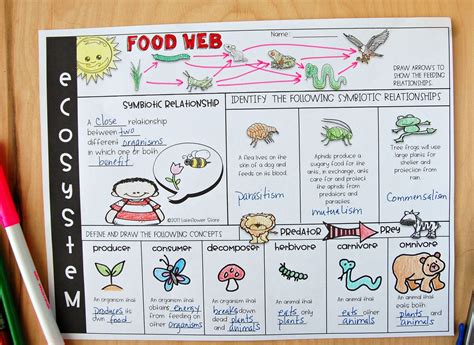 FOOD WEB
Name:
DRAW ARROWS TO
SHOW THE FEEDING
RELATIONSHIPS.
eCOSYSTeM
SYMBIOTIC RELATIONSHIP
A close
relationship
between two
different organisms
in which one or both
benefit
©2017 Lawnflower Store
IDENTIFY THE FOLLOWING SYMBIOTIC RELATIONSHIPS
A flea lives on the
skin of a dog
and feeds on its
blood.
parasitism
Aphids produce a
sugary food for the
ants, in exchange, ants
care for and protect
the aphids from
predators and
parasites.
mutualism
Tree frogs will use
large plants for
shelter and protection
from rain.
Commensalism
PREDATOR
PREY
DEFINE AND DRAW THE FOLLOWING CONCEPTS
producer
An organism that
produces its
own food
consumer
An organism that
obtains energy
from feeding on
other organisms
decomposer
An organism that
breaks down
dead plants
and animals
herbivore
An animal that
eats only
plants
carnivore
An animal that
eats other
animals
omnivore
An animal that
eats both
plants and
animals